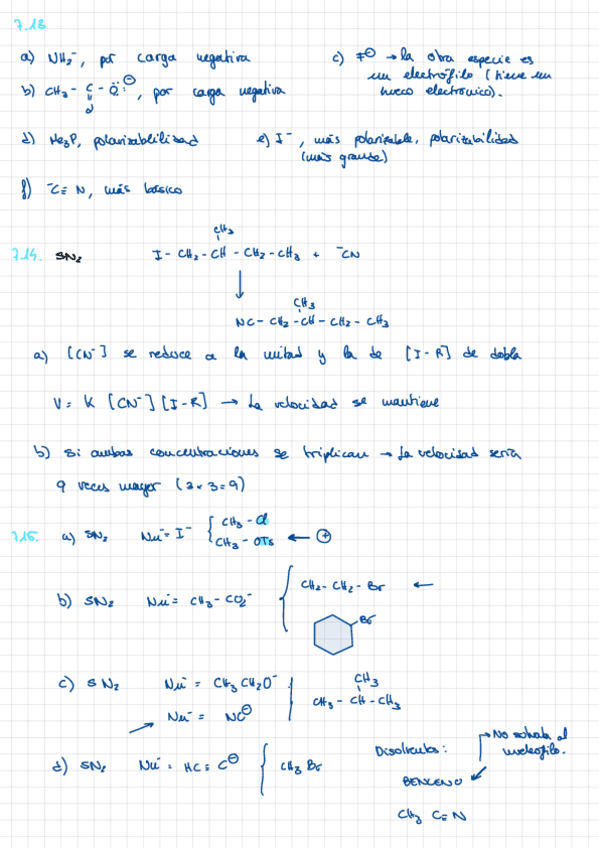 7.13
a) NH₂⁻, por carga negativa
c) F⊖ → la otra especie es un electrófilo (tiene un hueco electrónico).
b) CH₃ - C - O ⊖, por carga negativa
d) Me₃P, polarizabilidad
e) I⁻, más polarizable, polarizabilidad
(más grande)
f) ⁻C≡N, más básico
CH₃
7.14. SN₂ I - CH₂ - CH - CH₂ - CH₃ + ⁻CN
CH₃
NC - CH₂ - CH - CH₂ - CH₃
a) [CN⁻] se reduce a la mitad y la de [I-R] de dobla
V = K [CN⁻][I-R] → La velocidad se mantiene
b) Si ambas concentraciones se triplican → La velocidad sería
9 veces mayor (3 × 3 = 9)
7.15. a) SN₂ Nu⁻ = I⁻ { CH₃ - Cl
CH₃ - OTs ← ⊕
b) SN₂ Nu⁻ = CH₃ - CO₂⁻ { CH₃ - CH₂ - Br ←
Br
c) SN₂ Nu⁻ = CH₃CH₂O⁻
CH₃
CH₃ - CH - CH₃
→ Nu⁻ = NC⊖
d) SN₂ Nu⁻ = HC≡C⊖ { CH₃Br
Disolventes: → No solvata al nucleófilo.
BENCENO ↙
CH₃ C≡N